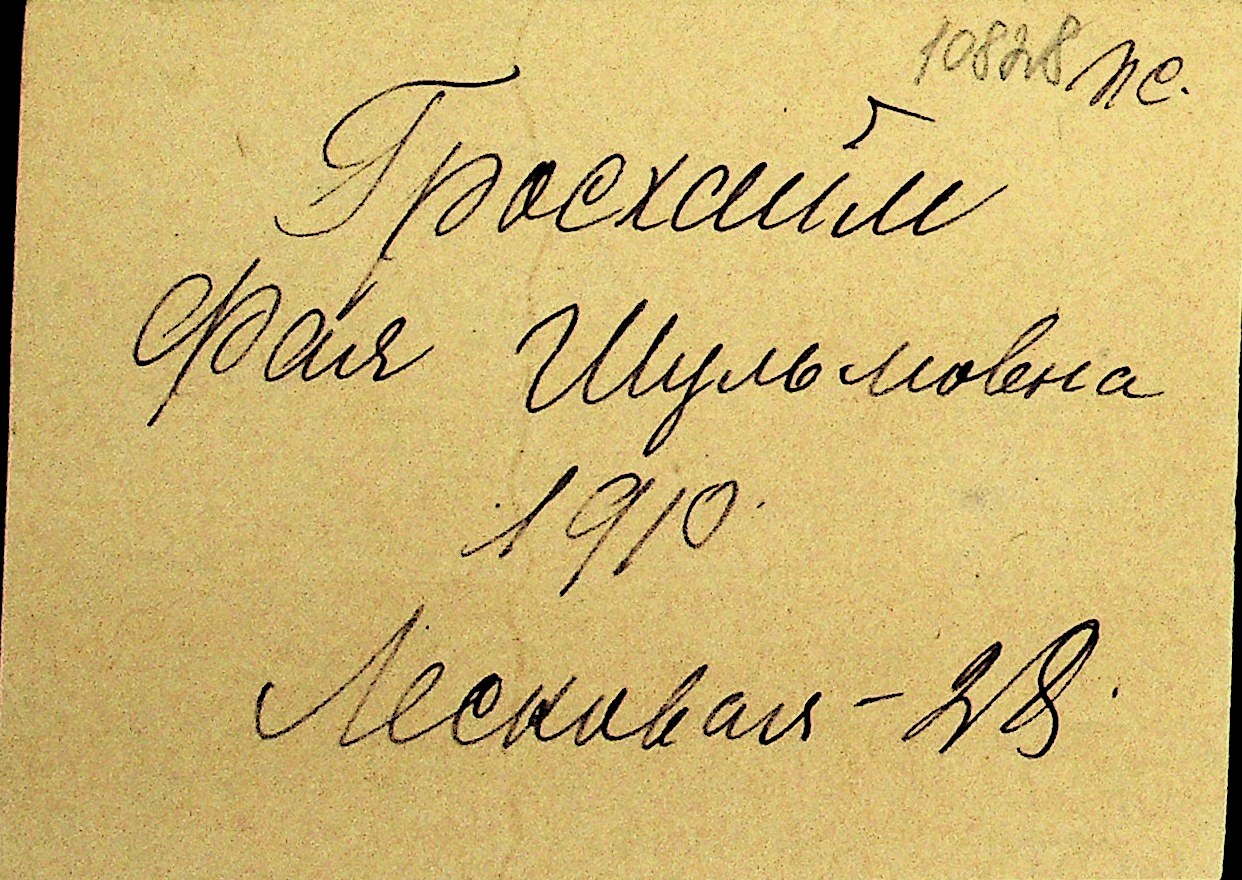 10828 пс.
Гросхайм
Фая Шульмовна
1910.
Лесковая - 28.